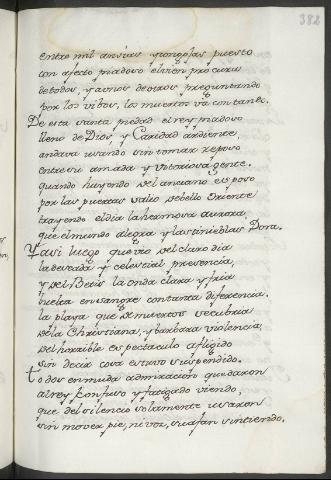 382
entre mil ansias y congojas puesto
con afecto piadoso el vien procura
de todos, y a vnos de otros preguntando
por los vibos, los muertos va contando.
De esta santa piedad el rey piadoso
lleno de Dios, y Caridad ardiente,
andava usando sin tomar reposo
entre su amada y vitoriosa gente.
quando huyendo del anciano esposo
por las puertas salio del bello oriente
trayendo el dia la hermosa aurora,
que el mundo alegra y las tinieblas Dora.
Y asi luego que vio del claro dia
la deseada y celestial presencia,
y del Betis la onda clara y fria
buelta en sangre con tanta diferencia.
la playa que de muertos se cubria
de la Christiana, y barbara violencia,
del horrible espectaculo afligido
sin decir cosa estuvo suspendido.
todos en muda admiracion quedaron
al rey confuso y fatigado viendo,
que del silencio solamente usaron
sin mover pie, ni voz, su afan sintiendo.